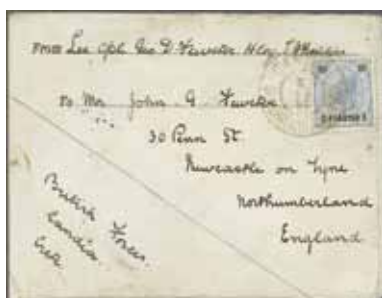 From Lce Cpl Geo D Fewster H Coy
To Mr John G Fewster
30 Penn St.
Newcastle on Tyne
Northumberland
England
British Forces.
Candia.
Crete